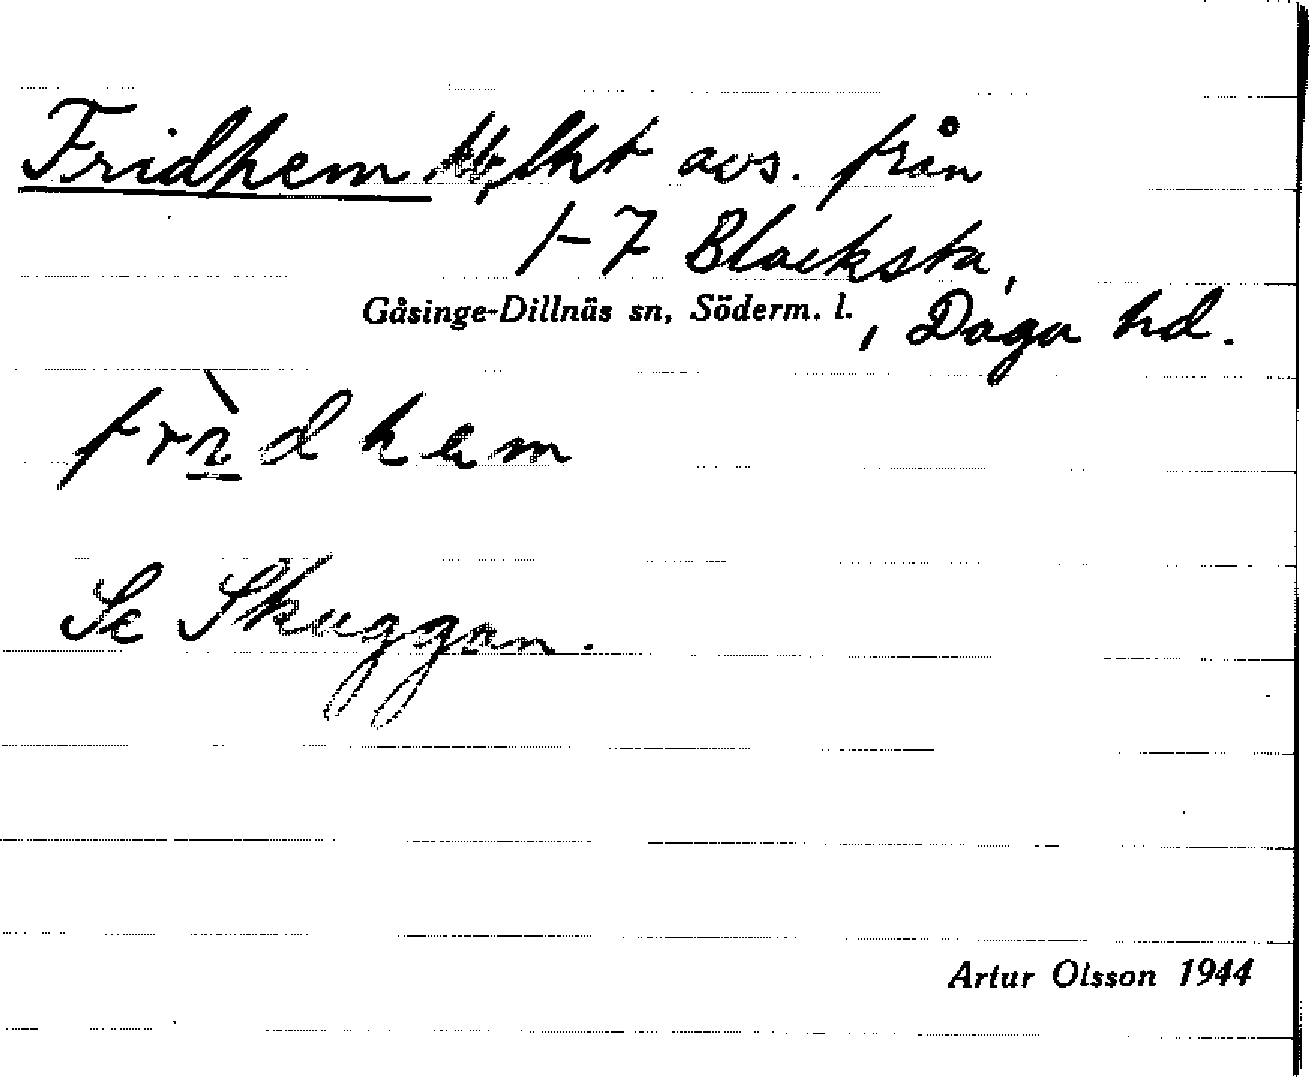 Fridhem, lht avs. från
1-7 Blacksta,
Gåsinge-Dillnäs sn, Söderm. l., Daga hd.
frìdhem
Se Skuggan.
Artur Olsson 1944